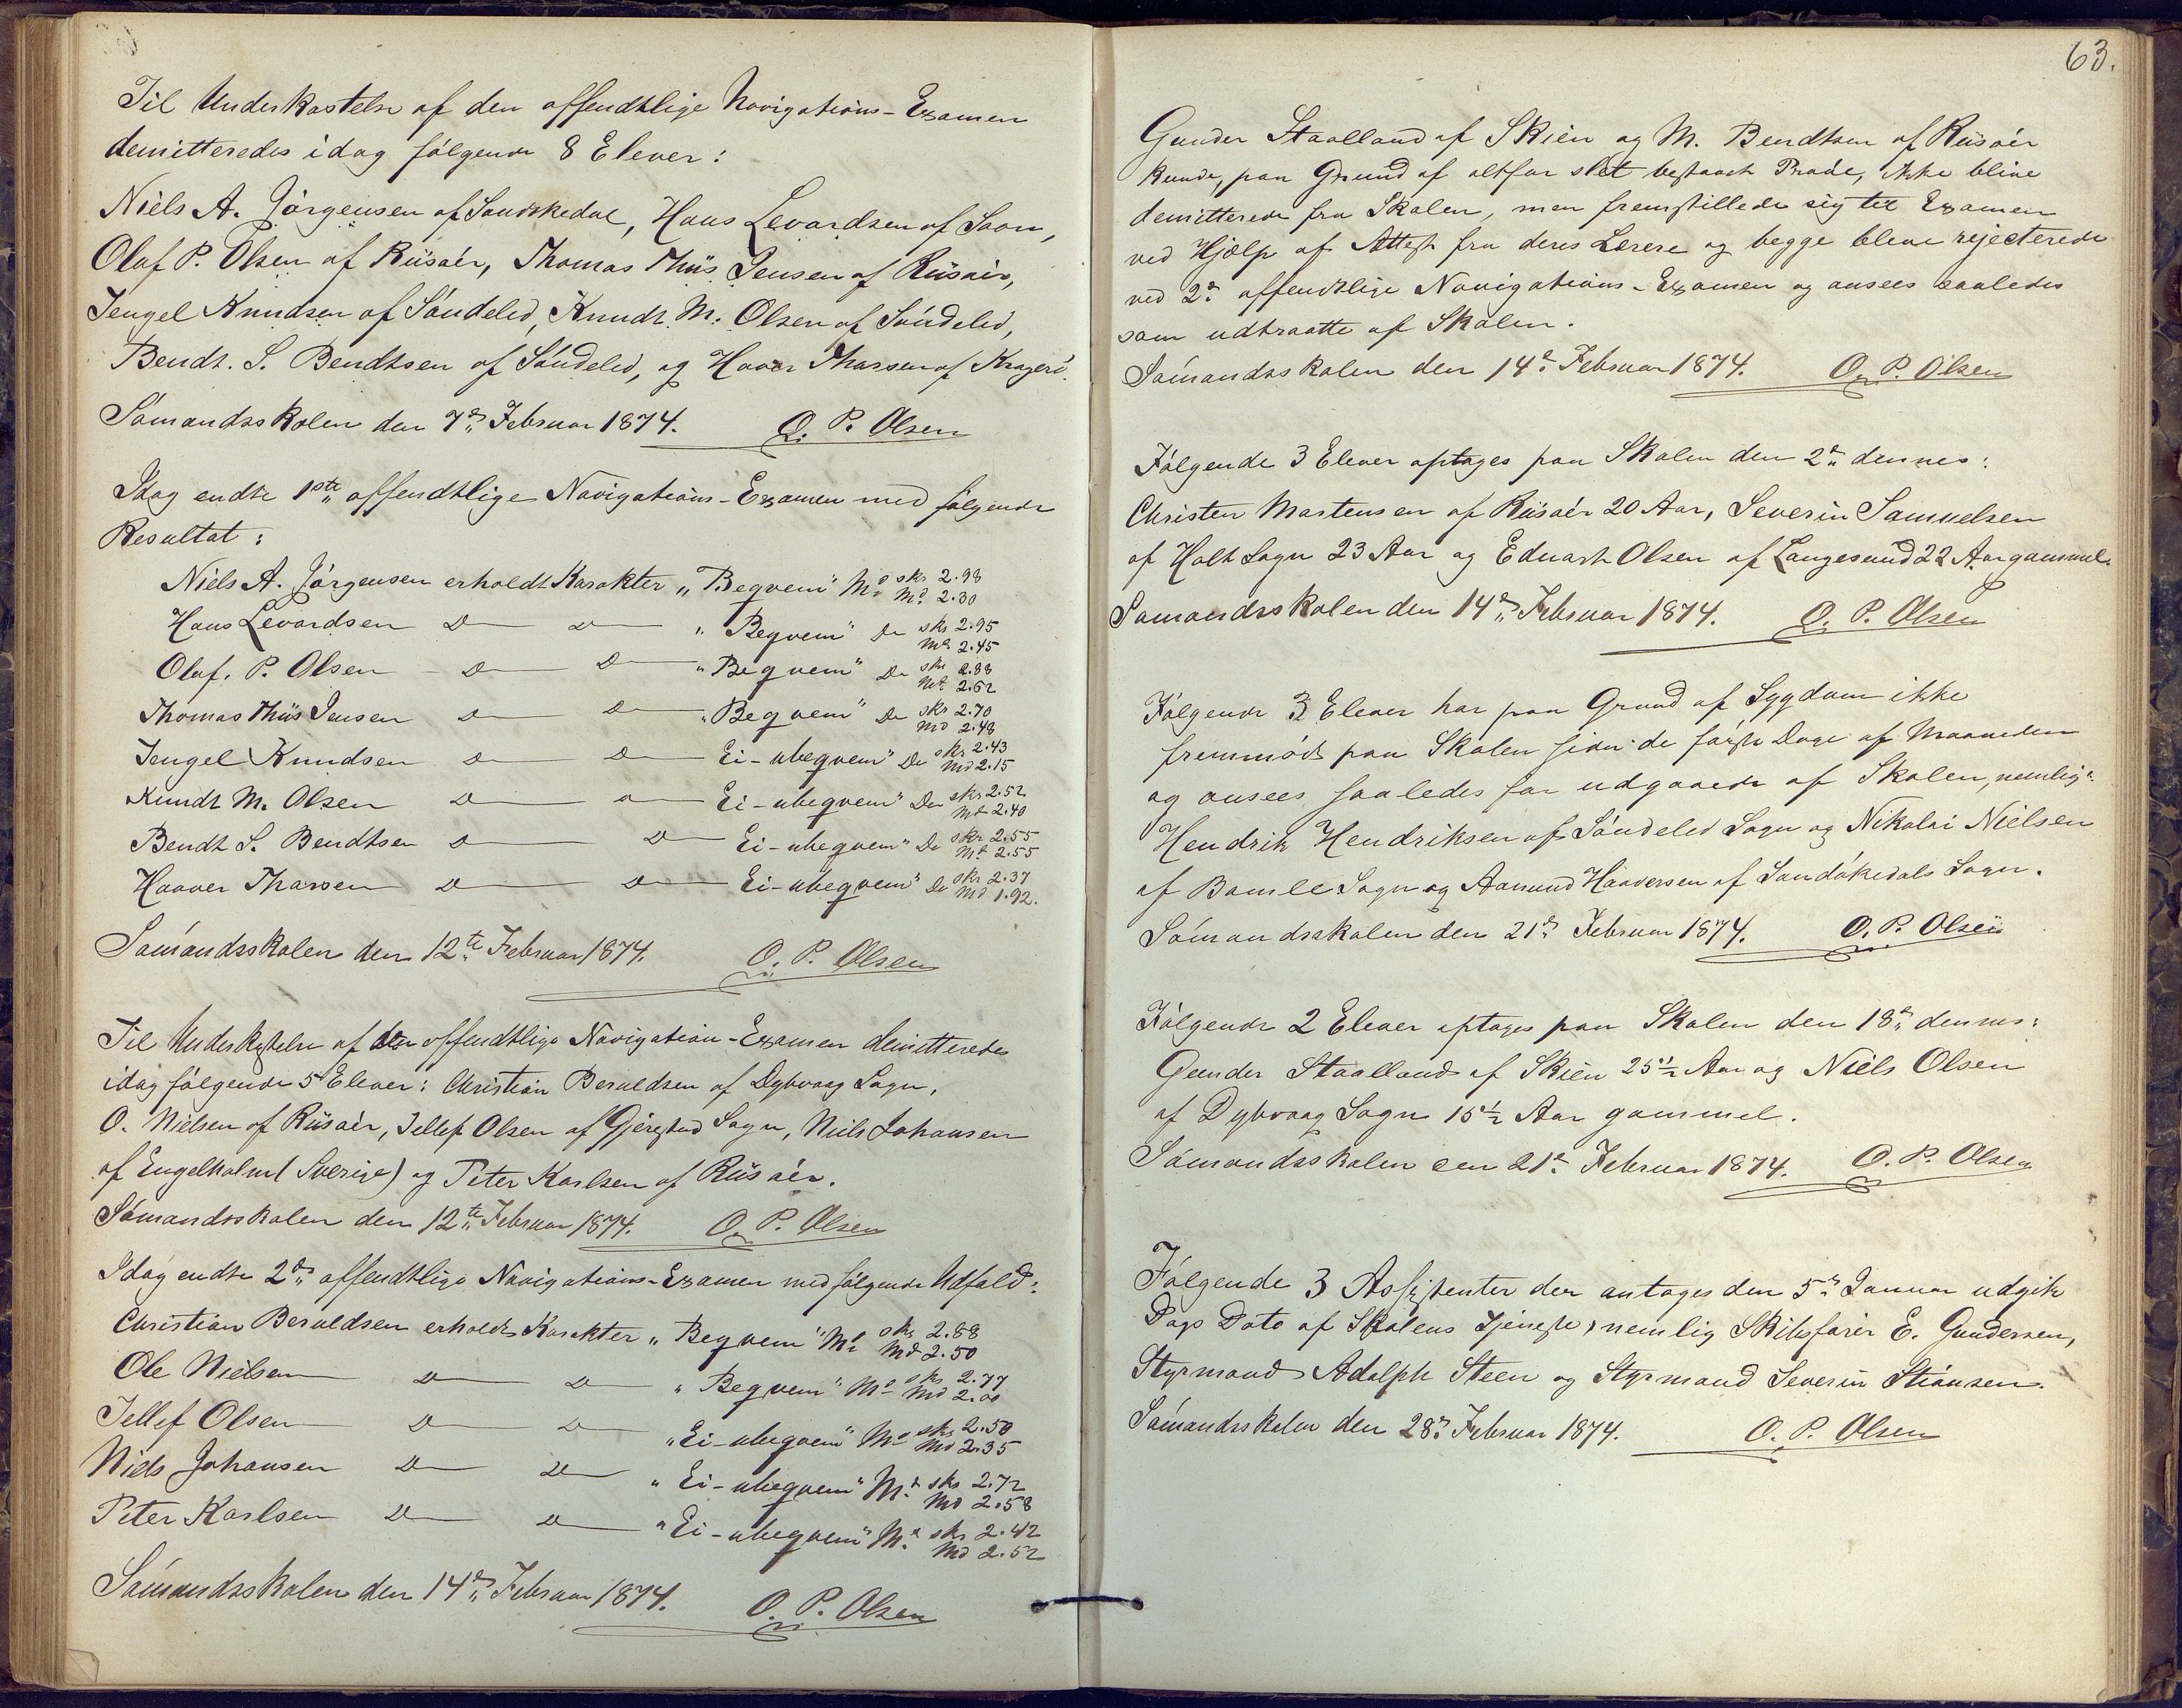 Til Underkastelse af den offendtlige Navigations-Examen
demitteredes idag følgende 8 Elever:
Niels A. Jørgensen af Sandøkedal, Hans Levardsen af Saon,
Olaf P. Olsen af Riisøer, Thomas Thiis Jensen af Riisøer,
Tengel Knudsen af Søndeled, Knudt M. Olsen af Søndeled,
Bendt. S. Bendtsen af Søndeled, og Haaver Tharsen af Kragerø.
Sømandsskolen den 7de Februar 1874. O. P. Olsen
Idag endte 1ste offendtlige Navigations-Examen med følgende
Resultat:
Niels A. Jørgensen erholdt Karakter „Beqvem" Md skr 2.98 Md 2.30
Hans Levardsen D D „Beqvem" Do skr 2.95 Md 2.45
Olaf. P. Olsen D D „Beqvem" Do skr 2.88 Mt 2.62
Thomas Thiis Jensen D D „Beqvem" Do skr 2.70 Md 2.48
Tengel Knudsen D D Ei-ubeqvem" Do skr 2.43 Md 2.15
Knudt M. Olsen D D Ei-ubeqvem" Do skr 2.52 Mt 2.40
Bendt S. Bendtsen D D Ei-ubeqvem" Do skr 2.55 Mt 2.55
Haaver Tharsen D D Ei-ubeqvem" Do skr 2.37 Md 1.92.
Sømandsskolen den 12te Februar 1874. O. P. Olsen
Til Underkastelse af den offendtlige Navigation-Examen demitteredes
idag følgende 5 Elever: Christian Beruldsen af Dybvaag Sogn,
O. Nielsen af Riisøer, Tellef Olsen af Gjerestad Sogn, Niels Johansen
af Engelholm (Sverige) og Peter Karlsen af Riisøer.
Sømandsskolen den 12te Februar 1874. O. P. Olsen
Idag endte 2den offendtlige Navigations-Examen med følgende Udfald:
Christian Beruldsen erholdt Karakter „Beqvem" Md skr 2.88 Md 2.50
Ole Nielsen D D „Beqvem" Md skr 2.77 Md 2.00
Tellef Olsen D D „Ei-ubeqvem" Md skr 2.50 Md 2.35
Niels Johansen D D „Ei-ubeqvem" Md skr 2.72 Md 2.58
Peter Karlsen D D „Ei-ubeqvem" Md skr 2.42 Md 2.52
Sømandsskolen den 14de Februar 1874. O. P. Olsen
63.
Gunder Staalland af Skien og M. Bendtsen af Riisøer
kunde, paa Grund af altfor slet bestaaet Prøve, ikke blive
demitterede fra Skolen, men fremstillede sig til Examen
ved Hjælp af Attest fra deres Lærere og begge bleve rejecterede
ved 2den offendtlige Navigations-Examen og ansees saaledes
som udtraatte af Skolen.
Sømandsskolen den 14de Februar 1874. O. P. Olsen
Følgende 3 Elever optages paa Skolen den 2den dennes:
Christen Mortensen af Riisøer 20 Aar, Severin Samuelsen
af Holt Sogn 23 Aar og Eduart Olsen af Langesund 22 Aar gammel.
Sømandsskolen den 14de Februar 1874. O. P. Olsen
Følgende 3 Elever har paa Grund af Sygdom ikke
fremmødt paa Skolen siden de første Dage af Maaneden
og ansees saaledes for udgaaede af Skolen, nemlig:
Hendrik Hendriksen af Søndeled Sogn og Nikolai Nielsen
af Bamle Sogn og Aanund Haaversen af Sandøkedals Sogn.
Sømandsskolen den 21de Februar 1874. O. P. Olsen
Følgende 2 Elever optages paa Skolen den 18de dennes:
Gunder Staalland af Skien 25½ Aar og Niels Olsen
af Dybvaag Sogn 15½ Aar gammel.
Sømandsskolen den 21de Februar 1874. O. P. Olsen
Følgende 3 Assistenter der antages den 5te Januar udgik
Dags Dato af Skolens Tjeneste, nemlig Skibsfører E. Gundersen,
Styrmand Adolph Steen og Styrmand Severin Stiansen.
Sømandsskolen den 28de Februar 1874. O. P. Olsen